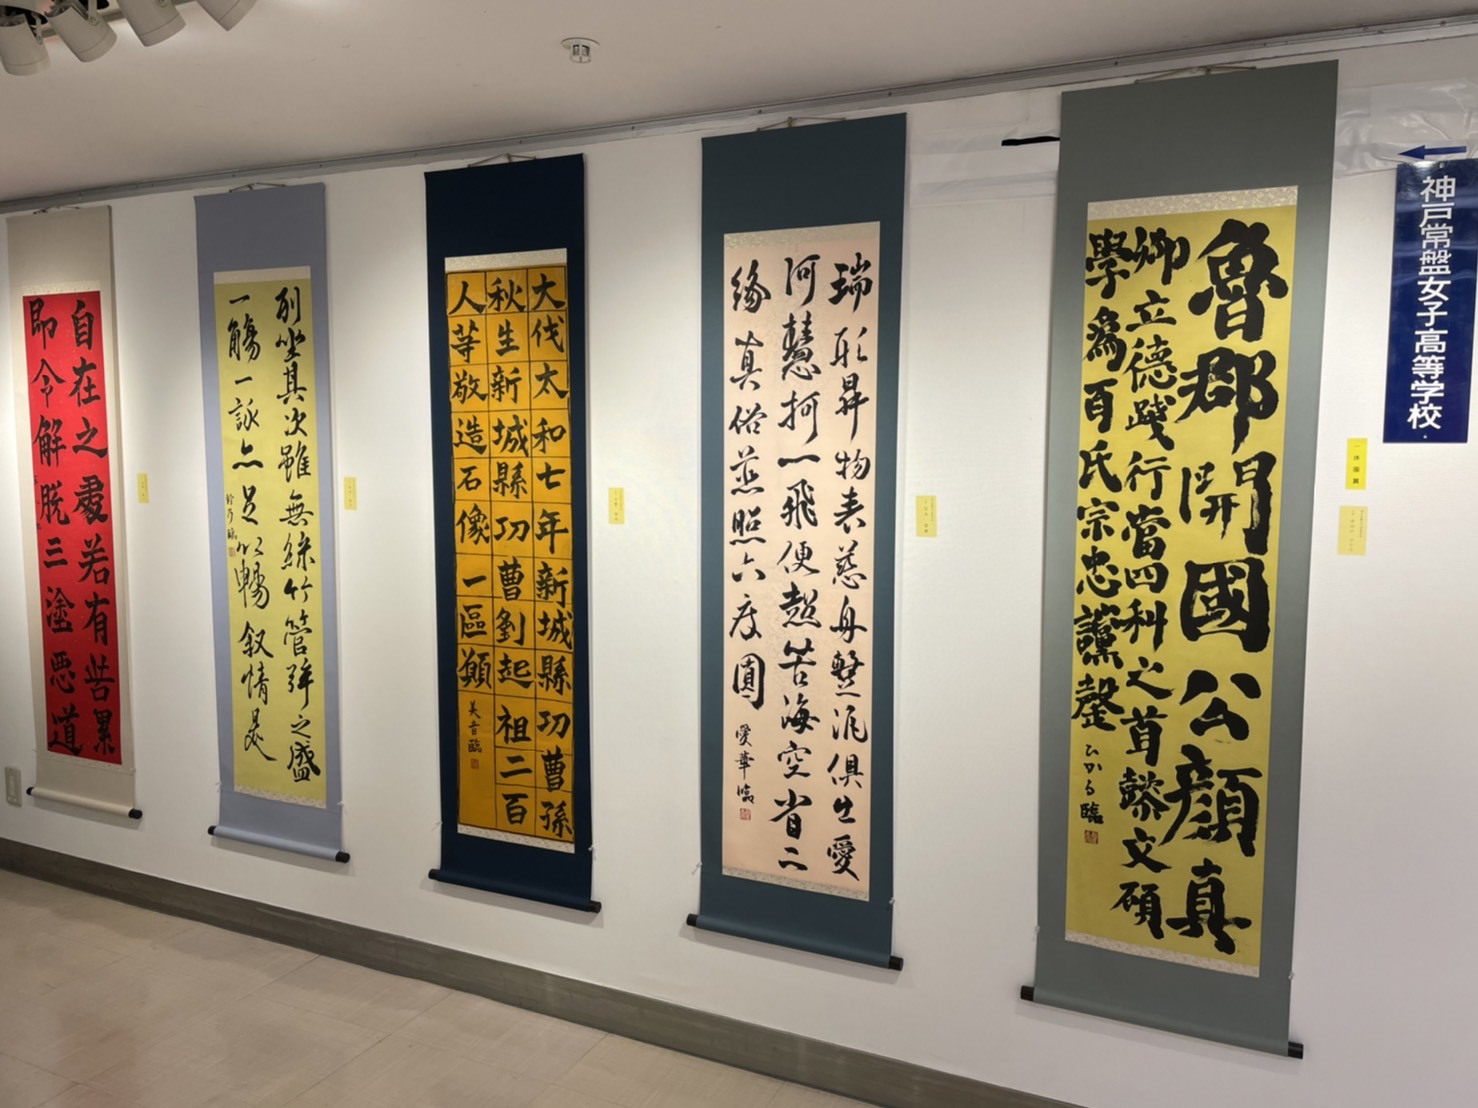 神戸常盤女子高等学校
魯郡開國公顔真
卿立德踐行當四科之首懿文碩
學為百氏宗忠讜罄
ひかる臨
瑞形昇物表慈舟繫泥俱生愛
河慧柯一飛便超苦海空省二
緣真俗蒸照六度圓
愛華臨
大伐太和七年新城縣功曹孫
秋生新城縣功曹劉起祖二百
人等敬造石像一區願
美音臨
列坐其次雖無絲竹管絃之盛
一觴一詠亦足以暢叙情是
自在之處若有苦累
即令解脱三塗悪道